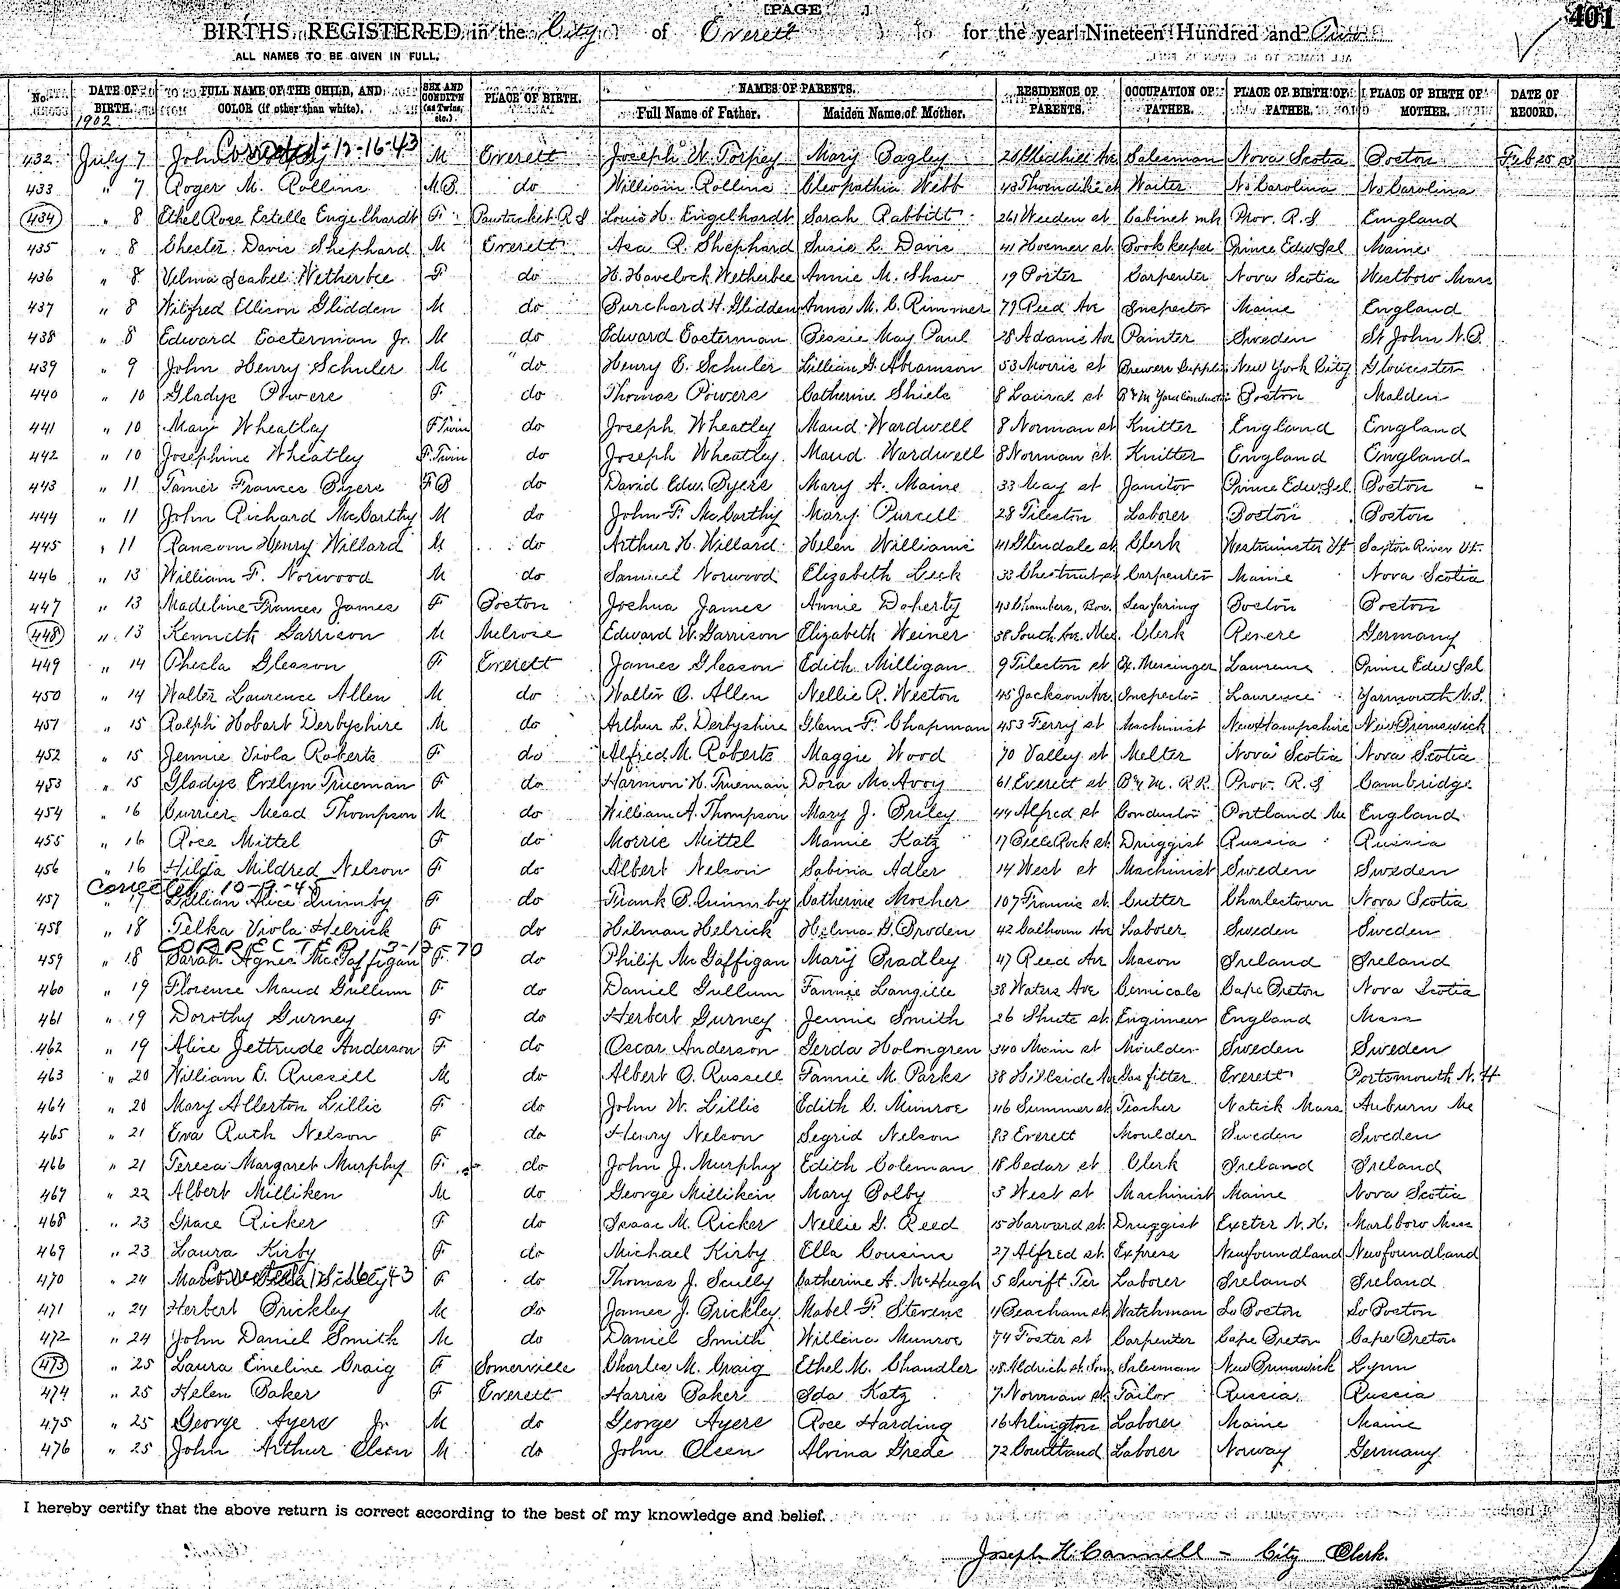 [PAGE ] 401
BIRTHS REGISTERED in the City of Everett for the year Nineteen Hundred and Two
ALL NAMES TO BE GIVEN IN FULL.
No. DATE OF BIRTH. FULL NAME OF THE CHILD, AND COLOR (if other than white). SEX AND CONDIT'N (as Twins, etc.) PLACE OF BIRTH. NAMES OF PARENTS. Full Name of Father. Maiden Name of Mother. RESIDENCE OF PARENTS. OCCUPATION OF FATHER. PLACE OF BIRTH OF FATHER. PLACE OF BIRTH OF MOTHER. DATE OF RECORD.
1902
Corrected 1-13-16-43
432 July 7 John M Everett Joseph W. Torpey Mary Bagley Salesman Nova Scotia Boston Feb 25 03
433 " 7 Roger M. Rollins M.B. do William Rollins Cleopathia Webb 43 Thorndike st Waiter No Carolina No Carolina
434 " 8 Ethel Rose Estelle Engelhardt F Pawtucket R.I Louis H. Engelhardt Sarah Rabbitt 261 Weeden st Cabinet mkr Prov. R.I England
435 " 8 Chester Davis Shephard M Everett Asa R. Shephard Susie L. Davis 41 Hosmer st. Book keeper Prince Edw Isl Maine
436 " 8 Velma Isabel Wetherbee F do H. Havelock Wetherbee Annie M. Shaw 19 Porter Carpenter Nova Scotia Westboro Mass
437 " 8 Wilfred Ellison Glidden M do Burchard H. Glidden Anna M. C. Rimmer 79 Reed Ave Inspector Maine England
438 " 8 Edward Easterman Jr. M do Edward Easterman Bessie May Paul 28 Adams Ave Painter Sweden St John N.B.
439 " 9 John Henry Schuler M do Henry E. Schuler Lillian G. Abramson 53 Morris st Brewers Supplies New York City Gloucester
440 " 10 Gladys Powers F do Thomas Powers Catherine Shiels 8 Laurel st B & M Yard Conductor Boston Malden
441 " 10 Mary Wheatley F Twin do Joseph Wheatley Maud Wardwell 8 Norman st Knitter England England
442 " 10 Josephine Wheatley F. Twin do Joseph Wheatley Maud Wardwell 8 Norman st. Knitter England England
443 " 11 Tamer Frances Byers F B do David Edw. Byers Mary A. Maine 33 May st Janitor Prince Edw. Isl Boston
444 " 11 John Richard McCarthy M do John F. McCarthy Mary Purcell 28 Tileston Laborer Boston Boston
445 " 11 Ransom Henry Willard M do Arthur H. Willard Helen Williams 41 Glendale st Clerk Westminster Vt Saxton River Vt.
446 " 13 William F. Norwood M do Samuel Norwood Elizabeth Leck 33 Chestnut st Carpenter Maine Nova Scotia
447 " 13 Madeline Frances James F Boston Joshua James Annie Doherty 43 Chambers, Bos. Seafaring Boston Boston
448 " 13 Kenneth Garrison M Melrose Edward W. Garrison Elizabeth Weiner 38 South Ave. Mel. Clerk Revere Germany
449 " 14 Thecla Gleason F Everett James Gleason Edith Milligan 9 Tileston st Ex. Messinger Lawrence Prince Edw Isl
450 " 14 Walter Laurence Allen M do Walter O. Allen Nellie R. Weston 45 Jackson Ave. Inspector Laurence Yarmouth N.S.
451 " 15 Ralph Hobart Derbyshire M do Arthur L. Derbyshire Glenn F. Chapman 453 Ferry st Machinist New Hampshire New Brunswick
452 " 15 Jennie Viola Roberts F do Alfred M. Roberts Maggie Wood 70 Valley st Melter Nova Scotia Nova Scotia
453 " 15 Gladys Evelyn Trueman F do Harmon H. Trueman Dora McAvoy 61 Everett st B & M. R.R. Prov. R.I Cambridge
454 " 16 Currier Mead Thompson M do William A. Thompson Mary J. Briley 44 Alfred st Conductor Portland Me England
455 " 16 Rose Mittel F do Morris Mittel Mamie Katz 17 Belle Rock st. Druggist Russia Russia
456 " 16 Hilda Mildred Nelson F do Albert Nelson Sabina Adler 14 West st Machinist Sweden Sweden
Corrected 10-19-45
457 " 17 Lillian Alice Quimby F do Frank B. Quimby Catherine Mosher 107 Francis st. Cutter Charlestown Nova Scotia
458 " 18 Telka Viola Helrick F do Hilman Helrick Helma G. Broden 42 Calhoun Ave Laborer Sweden Sweden
CORRECTED 3-12-70
459 " 18 Sarah Agnes McGaffigan F. do Philip McGaffigan Mary Bradley 47 Reed Ave Mason Ireland Ireland
460 " 19 Florence Maud Gullum F do Daniel Gullum Fannie Langille 38 Waters Ave Cemicals Cape Breton Nova Scotia
461 " 19 Dorothy Gurney F do Herbert Gurney Jennie Smith 26 Shute st. Engineer England Mass
462 " 19 Alice Jettrude Anderson F do Oscar Anderson Gerda Holmgren 340 Main st Moulder Sweden Sweden
463 " 20 William E. Russell M do Albert O. Russell Fannie M. Parks 38 Hillside Av Gas fitter Everett Portsmouth N.H
464 " 20 Mary Allerton Lillis F do John W. Lillis Edith C. Munroe 46 Summer st. Teacher Natick Mass Auburn Me
465 " 21 Eva Ruth Nelson F do Henry Nelson Segrid Nelson 83 Everett Moulder Sweden Sweden
466 " 21 Teresa Margaret Murphy F. do John J. Murphy Edith Coleman 18 Cedar st Clerk Ireland Ireland
467 " 22 Albert Milliken M do George Milliken Mary Colby 3 West st Machinist Maine Nova Scotia
468 " 23 Grace Ricker F do Isaac M. Ricker Nellie G. Reed 15 Harvard st. Druggist Exeter N.H. Marlboro Mass
469 " 23 Laura Kirby F do Michael Kirby Ella Cousins 27 Alfred st. Express Newfoundland Newfoundland
470 " 24 Corrected 12-16-43 F do Thomas J. Scully Catherine A. McHugh 5 Swift Ter Laborer Ireland Ireland
471 " 24 Herbert Brickley M do James J. Brickley Mabel F. Stevens 4 Beacham st. Watchman So Boston So Boston
472 " 24 John Daniel Smith M do Daniel Smith Willena Munroe 74 Foster st Carpenter Cape Breton Cape Breton
473 " 25 Laura Emeline Craig F Somerville Charles M. Craig Ethel M. Chandler 48 Aldrich st. Som. Salesman New Brunswick Lynn
474 " 25 Helen Baker F Everett Harris Baker Ida Katz 7 Norman st. Tailor Russia Russia
475 " 25 George Ayers Jr. M do George Ayers Rose Harding 16 Arlington Laborer Maine Maine
476 " 25 John Arthur Olsen M do John Olsen Alvina Grede 72 Courtland Laborer Norway Germany
I hereby certify that the above return is correct according to the best of my knowledge and belief.
Joseph H. Cannell - City Clerk.